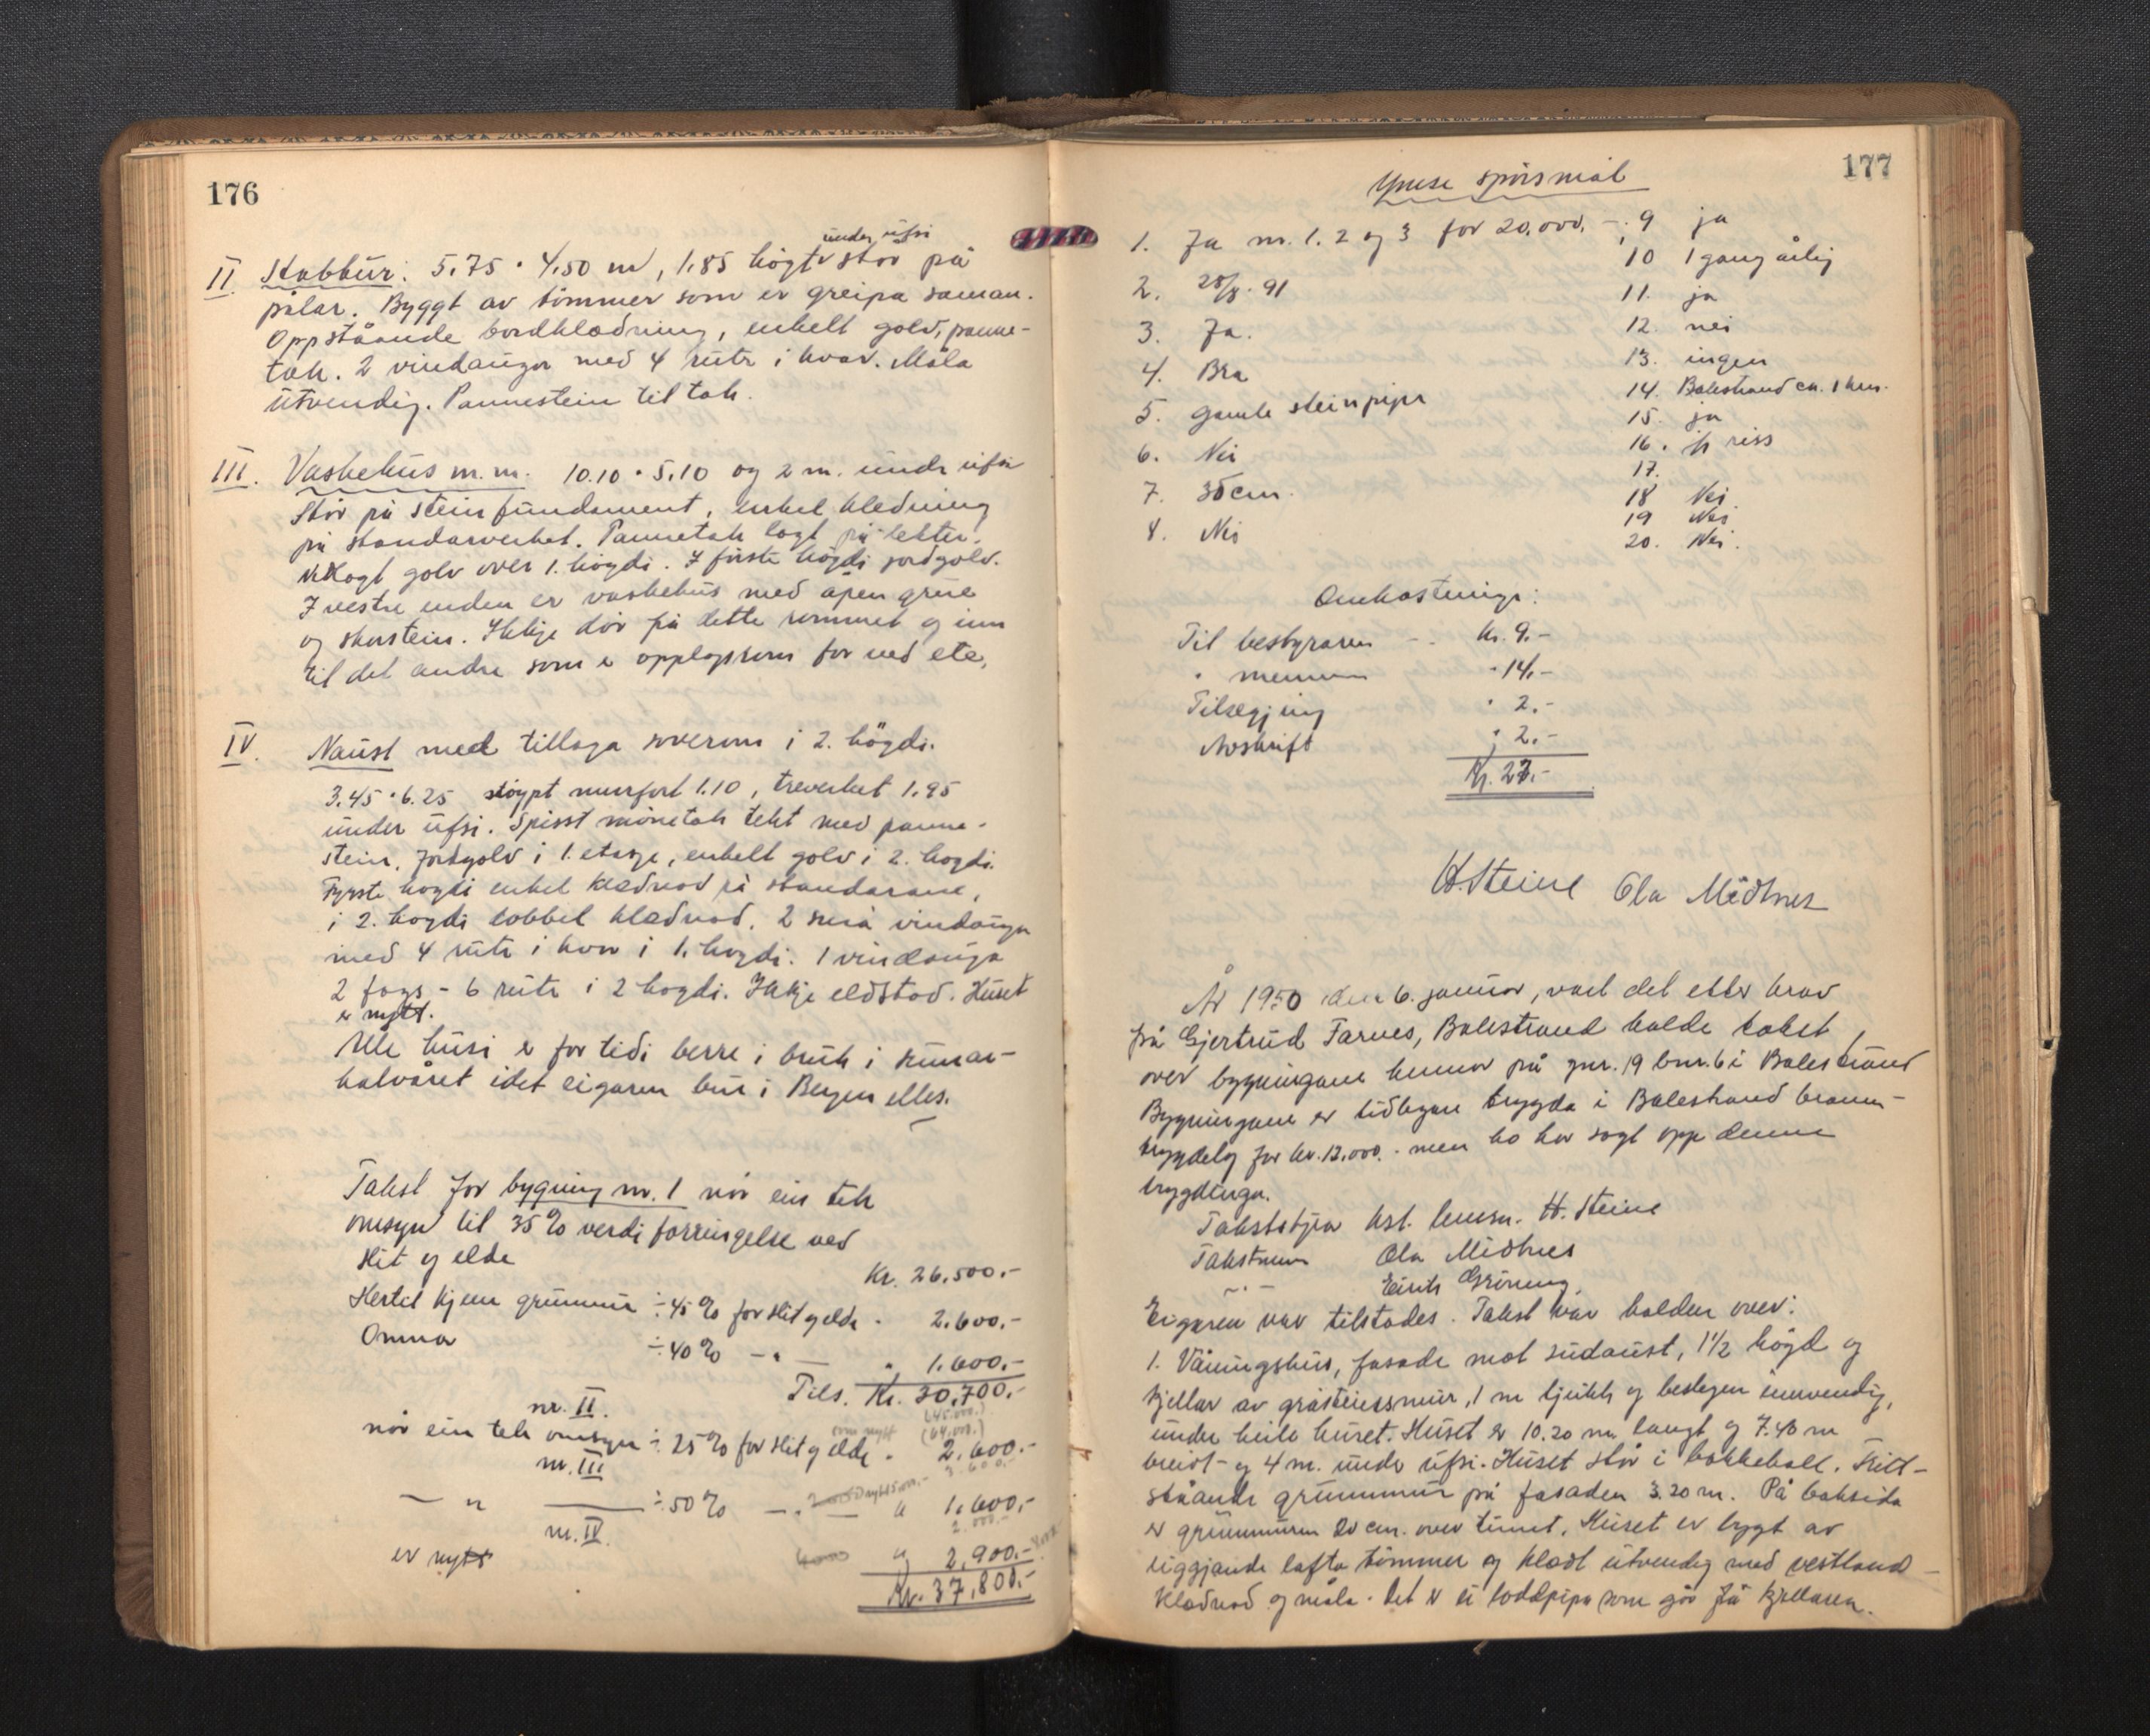 176
under ufsi
II. Stabbur: 5.75 · 4.50 m, 1.85 högt står på
pålar. Byggt av tömmer som er greipa saman.
Oppstående bordklædning, enkelt golv, panne-
tak. 2 vindaugor med 4 rute i kvar. Måla
utvendig. Pannestein til tak.
III. Vaskehus m.m. 10.10 · 5.10 og 2 m. unde ufsi
står på steinfundament, enkel kledning
på standarverket. Pannetak lagt på lekter.
lagt golv over 1. högdi. I fürste högdi jordgolv.
I vestre enden er vaskehus med åpen grue
og skorstein. Ikkje dör på dette rommet og inn
til det andre som e opplagsrom for ved etc.
IV. Naust med tillaga soverom i 2. högdi.
3.45 · 6.25 stöypt mur fort 1.10, treverket 1.95
under ufsi. Spisst mönetak tekt med panne-
stein. Jordgolv i 1. etasje, enkelt golv i 2. hogdi.
Fyrste hogdi enkel klædnad på standarane,
i 2. hogdi dobbel klædnad. 2 små vindaugo
med 4 rute i kvar i 1. hogdi. 1 vindauga
2 fags - 6 rute i 2 hogdi. Ikkje eldstad. Huset
er nytt.
Alle husi e for tidi berre i bruk i sumar-
halvåret idet eigaren bur i Bergen elles.
Takst for bygning nr. 1 når ein tek
omsyn til 35% verdiforringelse ved
slit og elde Kr. 26.500.-
Hertil kjem grunnmur ÷ 45% for slit og elde - 2.600.-
Omnar ÷ 40% - " - " 1.600.-
Tils. Kr. 30.700.-
nr. II. (45.000.)
som nytt (64.000.)
når ein tek omsyn ÷ 25% for slit og elde - 2.600.-
nr. III 3.600.-
— " — ÷ 50% — " — " 1.600.-
nr. IV. 2.000.-
er nytt 4000 " 2.900.-
Kr. 37.800.-
177
Ymse spörsmål
1. Ja nr. 1. 2 og 3 for 20.000. -
2. 28/8. 91
3. Ja.
4. Bra
5. gamle steinpipe
6. Nei
7. 35 cm.
8. Nei
9 ja
10 1 gang årlig
11. ja
12. nei
13. ingen
14. Balestrand ca. 1 km.
15. ja
16. jfr riss
17.
18 Nei
19 Nei
20. Nei.
Omkostninger:
Til bestyraren - - kr. 9.-
" mennene " 14.-
Tilsegjing " 2.-
Avskrift " 2.-
Kr. 27.-
H. Steine Ola Midtnes
År 1950 den 6. januar, vart det etter krav
frå Gjertrud Farnes, Balestrand halde takst
over bygningane hennar på gnr. 19 bnr. 6 i Balestrand
Bygningane er tidlegare trygda i Balestrand brann-
trygdelag for kr. 12.000. - men ho har sagt opp denne
trygdinga.
Takststyrar kst. lensm. H. Steine
Takstmenn Ola Midtnes
- " - Eirik Gröneng.
Eigaren var tilstades. Takst var halden over:
1. Våningshus, fasade mot sudaust, 1 1/2 högd og
kjellar av gråsteinsmur, 1 m tjukk og beslegen innvendig,
unde heile huset. Huset er 10.20 m langt og 7.40 m
breidt - og 4 m. unde ufsi. Huset står i bakkehall. Fritt-
stående grunnmur på fasaden 3.20 m. På baksida
er grunnmuren 20 cm. over tunet. Huset er bygt av
liggjande lafta tömmer og klædt utvendig med vestland-
klædnad og måla. Det er ei loddpipe som går frå kjellaren.